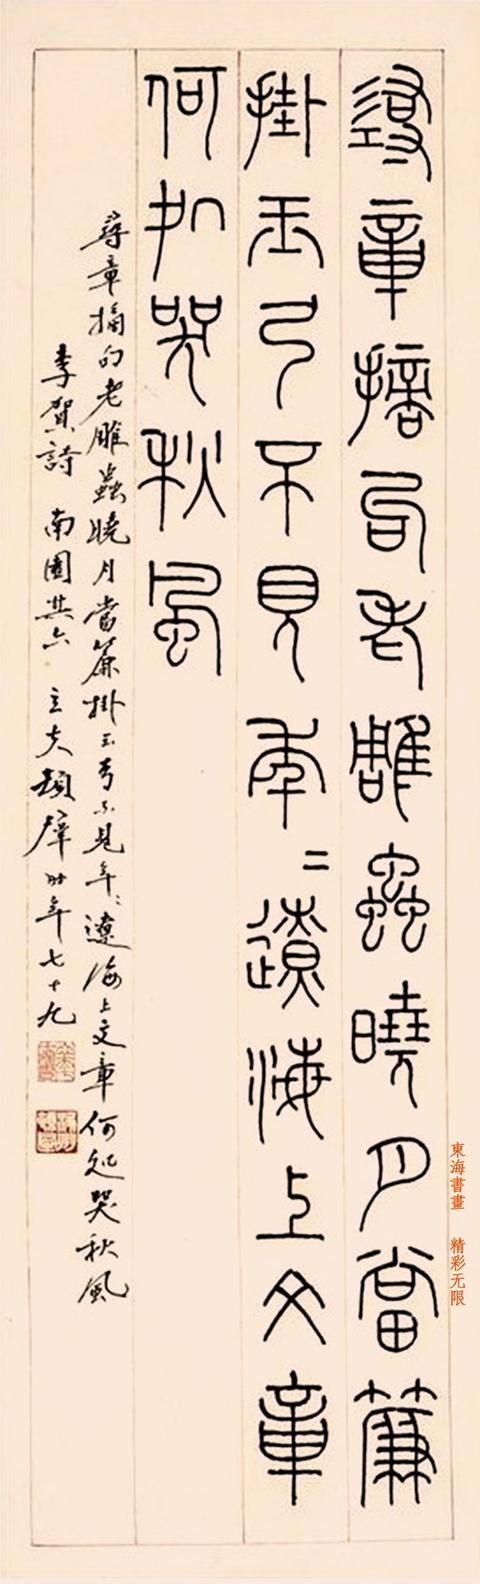 尋章摘句老雕蟲曉月當簾
掛玉弓不見年〻遼海上文章
何処哭秋風
尋章摘句老雕蟲曉月當簾掛玉弓不見年〻遼海上文章何処哭秋風
李賀詩 南園其六 立夫 時年七十九
東海書畫 精彩无限